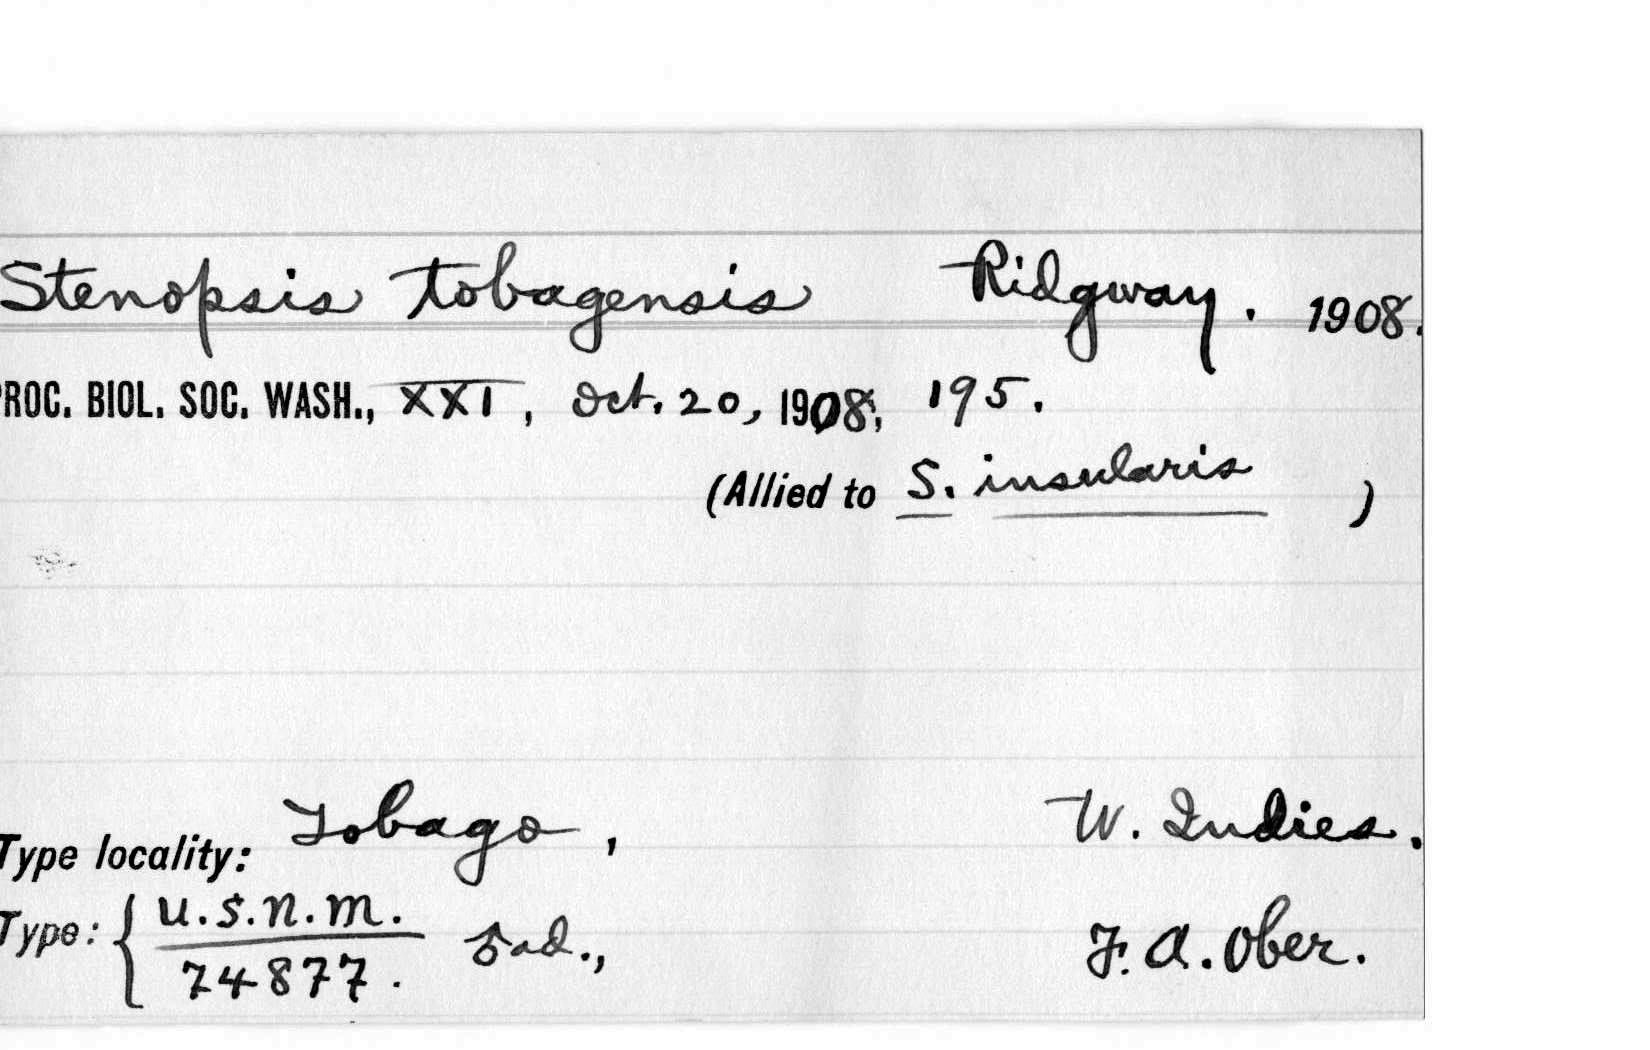 Stenopsis tobagensis Ridgway. 1908.
PROC. BIOL. SOC. WASH., XXI, Oct. 20, 1908, 195.
(Allied to S. insularis )
Tobago, W. Indies.
Type locality:
Type: { U.S.N.M. ♂ ad., F. A. Ober.
74877.